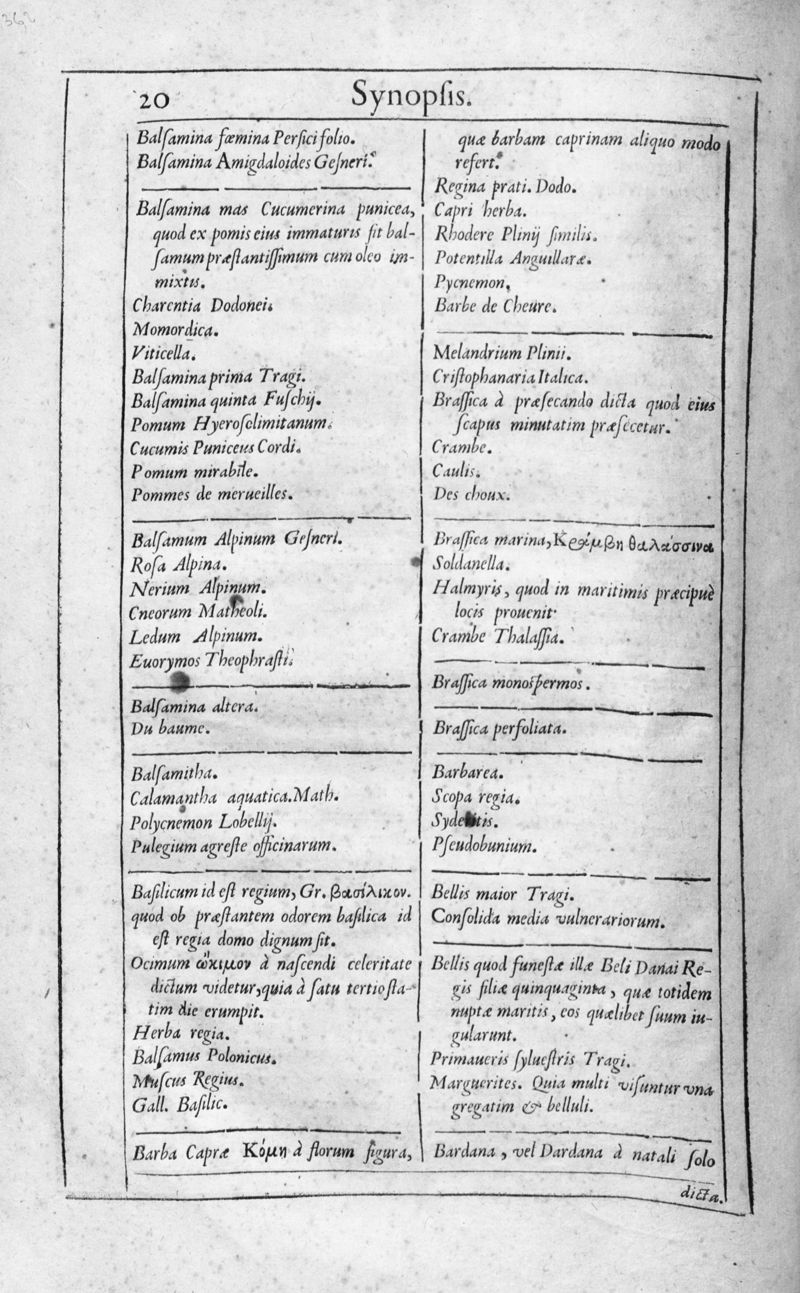 362
20
Synopſis.
Balſamina fœmina Perſicifolio.
Balſamina Amigdaloides Geſneri.
Balſamina mas Cucumerina punicea,
quod ex pomis eius immaturis fit bal-
ſamum præſtantiſſimum cum oleo im-
mixtis.
Charentia Dodonei.
Momordica.
Viticella.
Balſamina prima Tragi.
Balſamina quinta Fuſchij.
Pomum Hyeroſolimitanum.
Cucumis Puniceus Cordi.
Pomum mirabile.
Pommes de merueilles.
Balſamum Alpinum Geſneri.
Roſa Alpina.
Nerium Alpinum.
Cneorum Matheoli.
Ledum Alpinum.
Euorymos Theophraſti.
Balſamina altera.
Du baume.
Balſamitha.
Calamantha aquatica. Math.
Polycnemon Lobellij.
Pulegium agreſte officinarum.
Baſilicum id eſt regium, Gr. βασίλικον.
quod ob præſtantem odorem baſilica id
eſt regia domo dignum ſit.
Ocimum ὤκιμον à naſcendi celeritate
dictum videtur, quia à ſatu tertio ſta-
tim die erumpit.
Herba regia.
Balſamus Polonicus.
Muſcus Regius.
Gall. Baſilic.
Barba Capræ Κόμη à florum figura,
quæ barbam caprinam aliquo modo
refert.
Regina prati. Dodo.
Capri herba.
Rhodere Plinij ſimilis.
Potentilla Anguillaræ.
Pycnemon.
Barbe de Cheure.
Melandrium Plinii.
Criſtophanaria Italica.
Braſſica à præſecando dicta quod eius
ſcapus minutatim præſecetur.
Crambe.
Caulis.
Des choux.
Braſſica marina, Κράμβη θαλάσσινα
Soldanella.
Halmyris, quod in maritimis præcipuè
locis prouenit.
Crambe Thalaſſia.
Braſſica monoſpermos.
Braſſica perfoliata.
Barbarea.
Scopa regia.
Pſeudobunium.
Bellis maior Tragi.
Conſolida media vulnerariorum.
Bellis quod funeſtæ illæ Beli Danai Re-
gis filiæ quinquaginta, quæ totidem
nuptæ maritis, eos quælibet ſuum iu-
gularunt.
Primaueris ſylueſtris Tragi.
Marguerites. Quia multi viſuntur vna
gregatim & belluli.
Bardana, vel Dardana à natali ſolo
dicta.